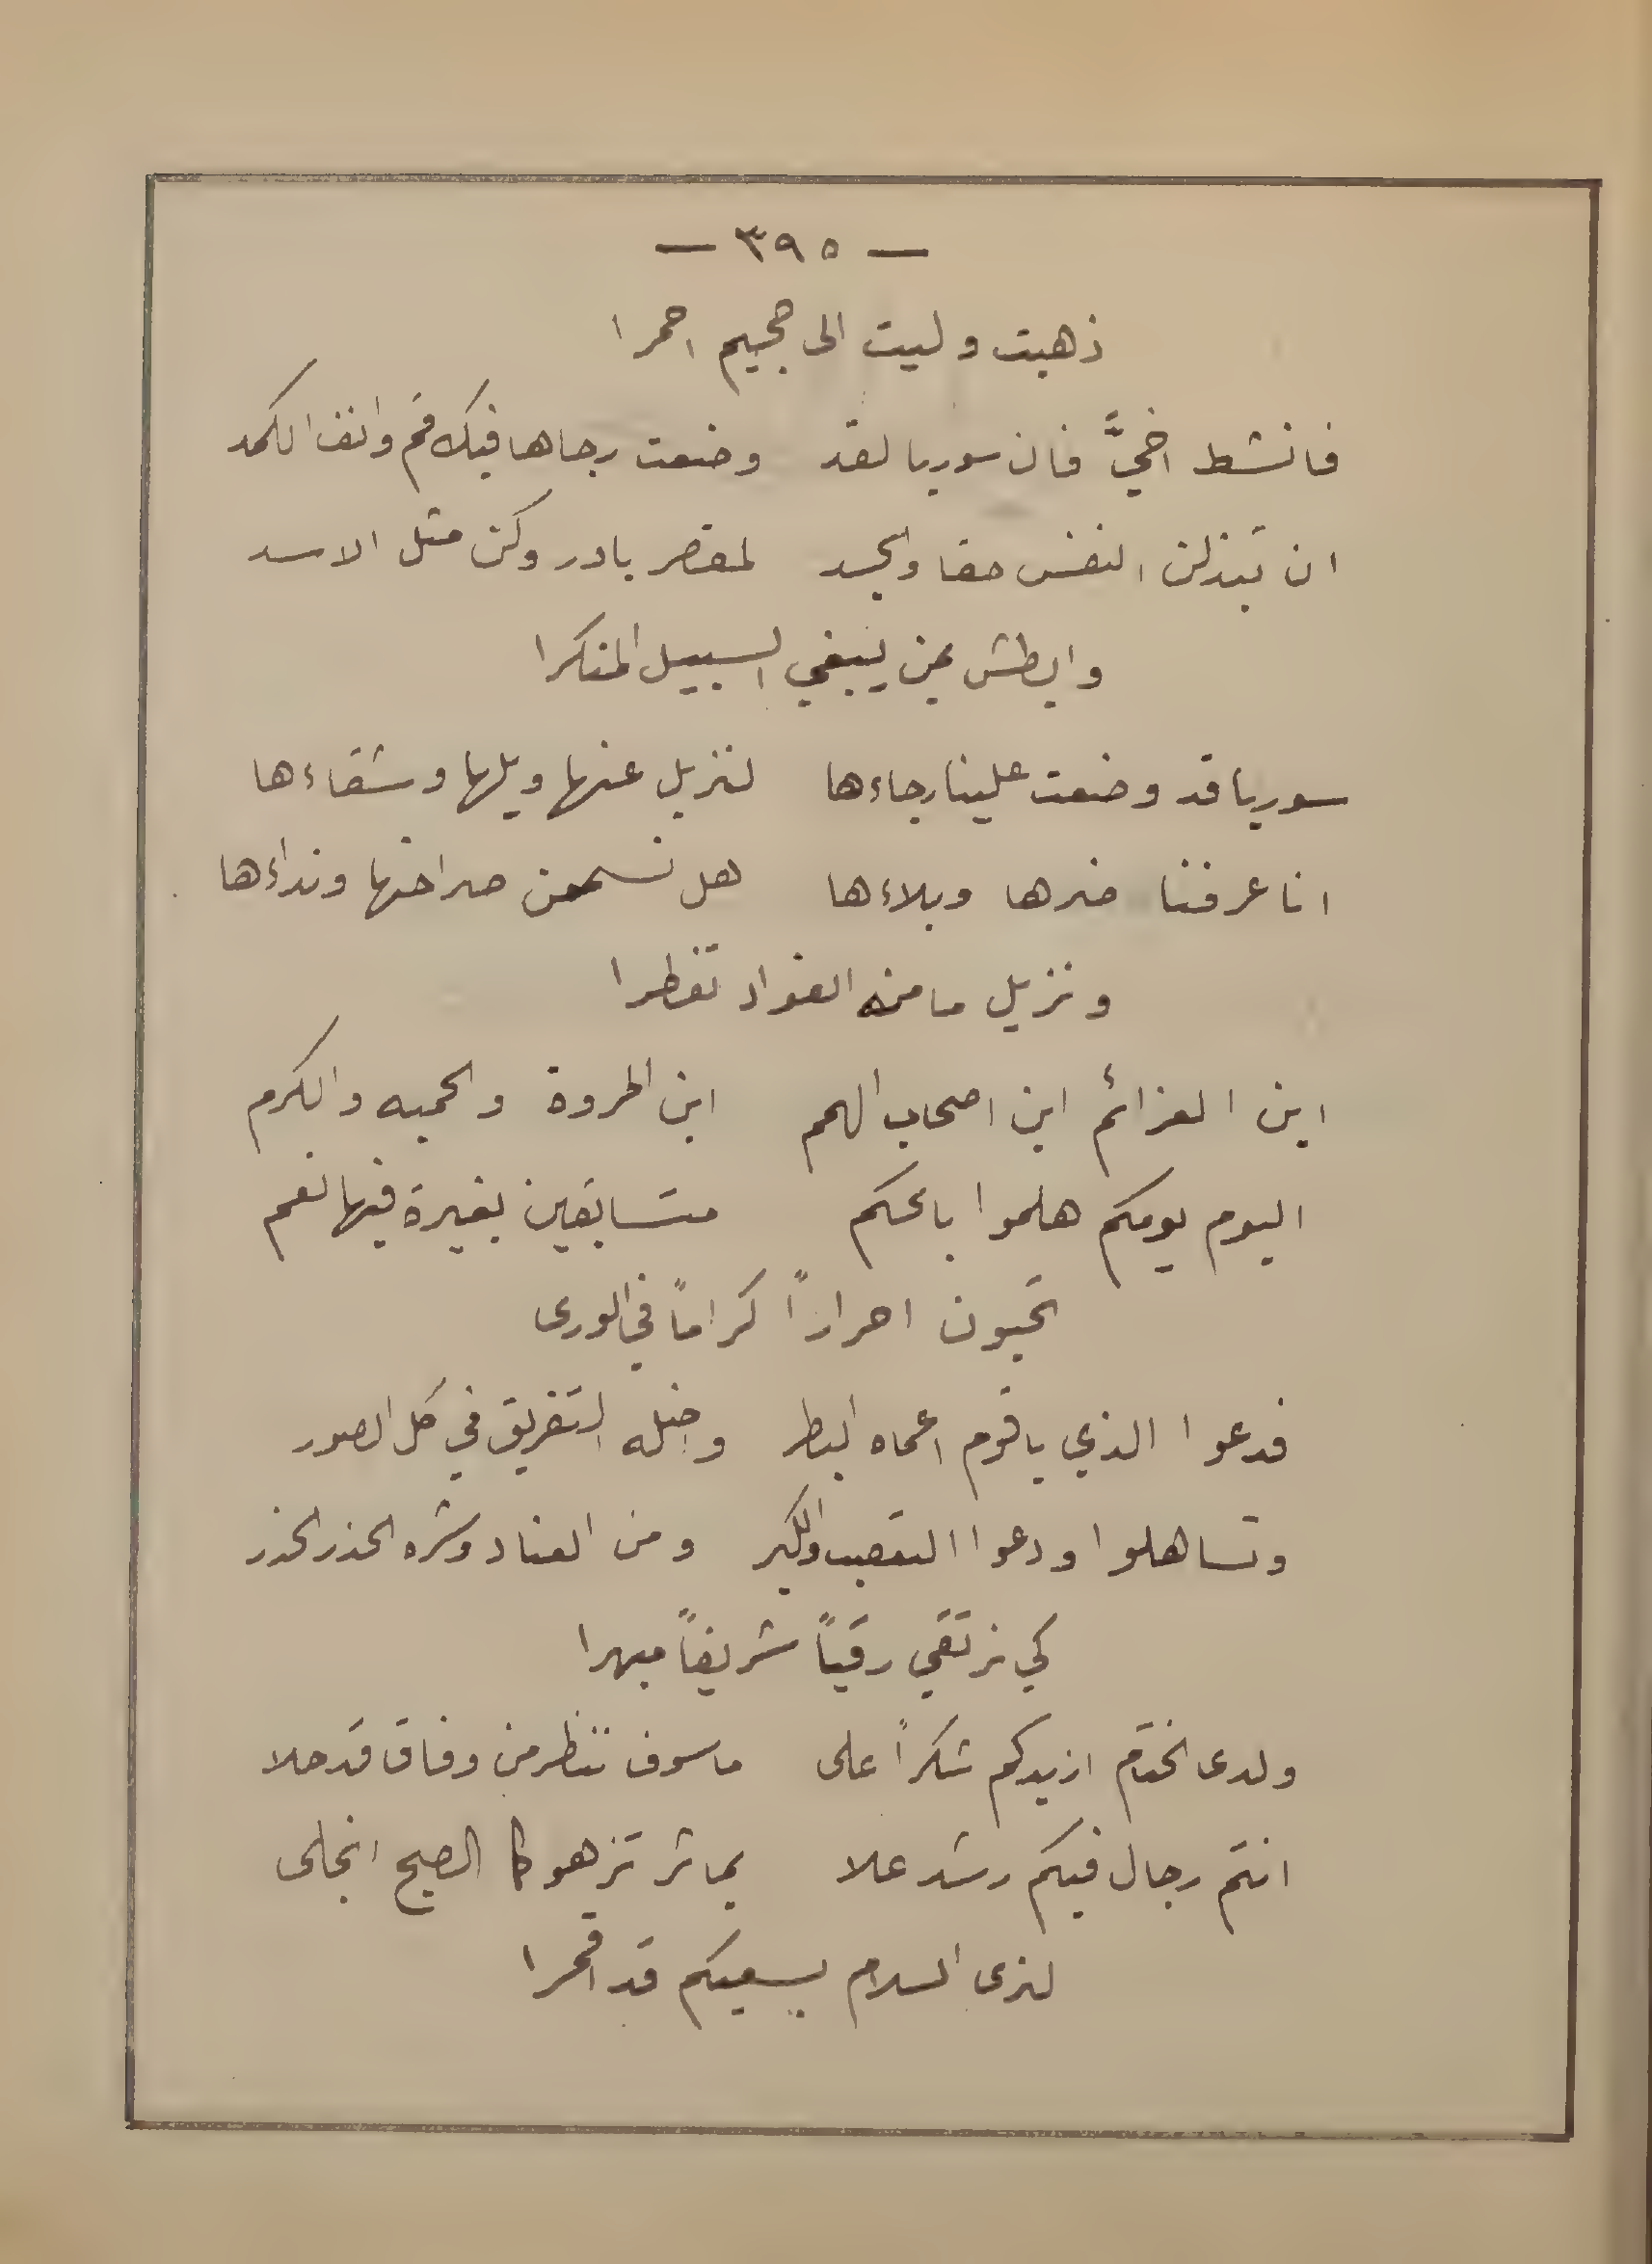 — ٣٩٥ —
ذهبت وليت الى جحيم احمرا
فانشط اخيَّ فان سوريا لقد وضعت رجاها فيك قم وانف الكمد
ان تبذلن النفس حقا والجسد لمقصر بادر وكن مثل الاسد
وابطش بمن يبغي السبيل المنكرا
سوريا قد وضعت علينا رجاءها لنزيل عنها ويلها وشقاءها
انا عرفنا ضرها وبلاءها هل نسمعن صراخها ونداءها
ونزيل ما منه الفواد تفطرا
اين العزائم اين اصحاب الهمم اين المروة والحميه والكرم
اليوم يومكم هلموا باعكم متسابقين بغيرة فيها نعم
تحيون احراراً كراماً في الورى
فدعوا الذي ياقوم اعماه البطر واضله التفريق في كل الصور
وتساهلوا ودعوا التعصب والكبر ومن العناد وشره الحذر الحذر
كي نرتقي رقياً شريفاً مبهرا
ولدى الختام ازيدكم شكراً على ماسوف ننظر من وفاق قد حلا
انتم رجال فيكم رشد علا بمآثر تزهو كما الصبح انجلى
لنرى السلام بسعيكم قد اقمرا